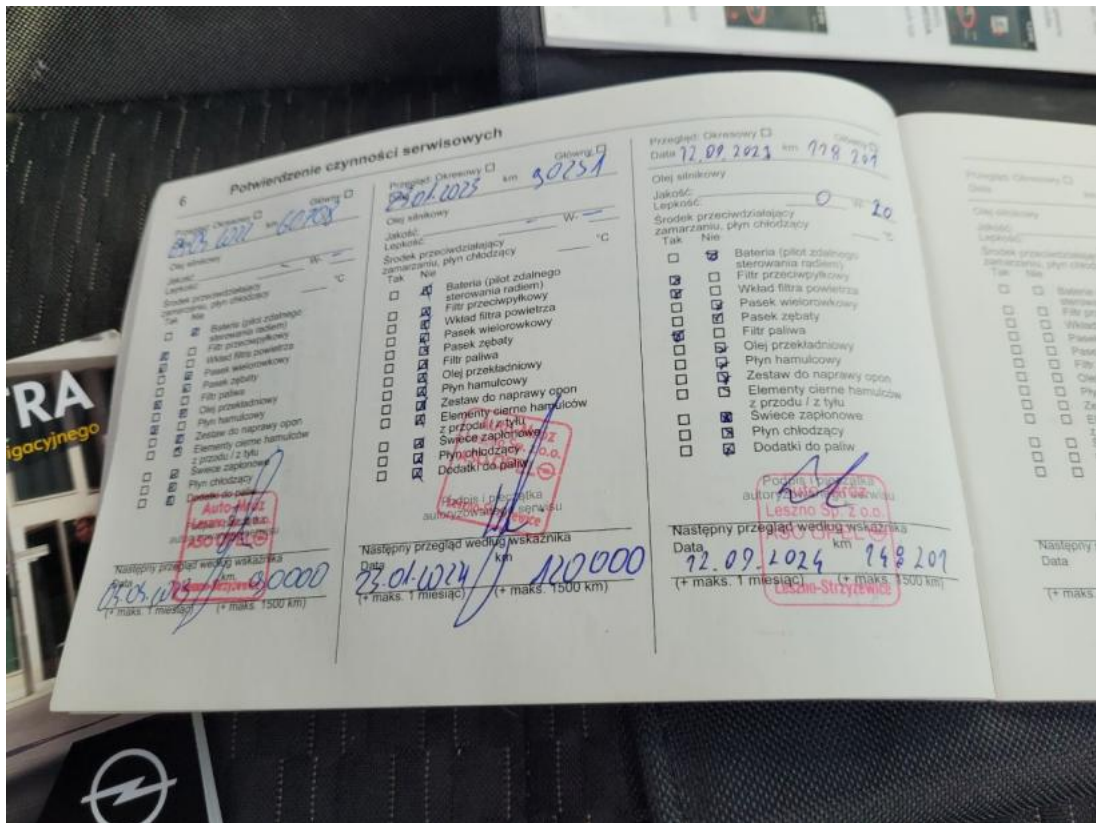 6
Potwierdzenie czynności serwisowych
Przegląd: Okresowy Główny
km 60708
Olej silnikowy
Jakość: – W- –
Lepkość:
Środek przeciwdziałający
zamarzaniu, płyn chłodzący °C
Tak Nie
Bateria (pilot zdalnego
sterowania radiem)
Filtr przeciwpyłkowy
Wkład filtra powietrza
Pasek wielorowkowy
Pasek zębaty
Filtr paliwa
Olej przekładniowy
Płyn hamulcowy
Zestaw do naprawy opon
Elementy cierne hamulców
z przodu / z tyłu
Świece zapłonowe
Płyn chłodzący
Dodatki do paliw
Auto-Mroz
Leszno Sp. z o.o.
ASO OPEL
Leszno-Strzyżewice
Następny przegląd według wskaźnika
Data km
90000
(+ maks. 1 miesiąc) (+ maks. 1500 km)
Przegląd: Okresowy Główny
Data 23.01.2023 km 90251
Olej silnikowy
Jakość: – W- –
Lepkość:
Środek przeciwdziałający
zamarzaniu, płyn chłodzący °C
Tak Nie
Bateria (pilot zdalnego
sterowania radiem)
Filtr przeciwpyłkowy
Wkład filtra powietrza
Pasek wielorowkowy
Pasek zębaty
Filtr paliwa
Olej przekładniowy
Płyn hamulcowy
Zestaw do naprawy opon
Elementy cierne hamulców
z przodu / z tyłu
Świece zapłonowe
Płyn chłodzący
Dodatki do paliw
Podpis i pieczątka
autoryzowanego serwisu
Leszno-Strzyżewice
Następny przegląd według wskaźnika
Data km
23.01.2024 120000
(+ maks. 1 miesiąc) (+ maks. 1500 km)
Przegląd: Okresowy Główny
Data 12.09.2023 km 118 201
Olej silnikowy
Jakość:
Lepkość: 0 W- 20
Środek przeciwdziałający
zamarzaniu, płyn chłodzący °C
Tak Nie
Bateria (pilot zdalnego
sterowania radiem)
Filtr przeciwpyłkowy
Wkład filtra powietrza
Pasek wielorowkowy
Pasek zębaty
Filtr paliwa
Olej przekładniowy
Płyn hamulcowy
Zestaw do naprawy opon
Elementy cierne hamulców
z przodu / z tyłu
Świece zapłonowe
Płyn chłodzący
Dodatki do paliw
Podpis i pieczątka
autoryzowanego serwisu
Auto-Mroz
Leszno Sp. z o.o.
ASO OPEL
Leszno-Strzyżewice
Następny przegląd według wskaźnika
Data km
12.09.2024 148 201
(+ maks. 1 miesiąc) (+ maks. 1500 km)
Następny
Data
(+ maks.
RA
igacyjnego